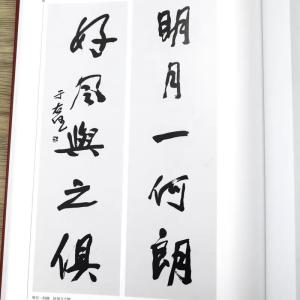 明月一何朗
好風與之俱
于右任